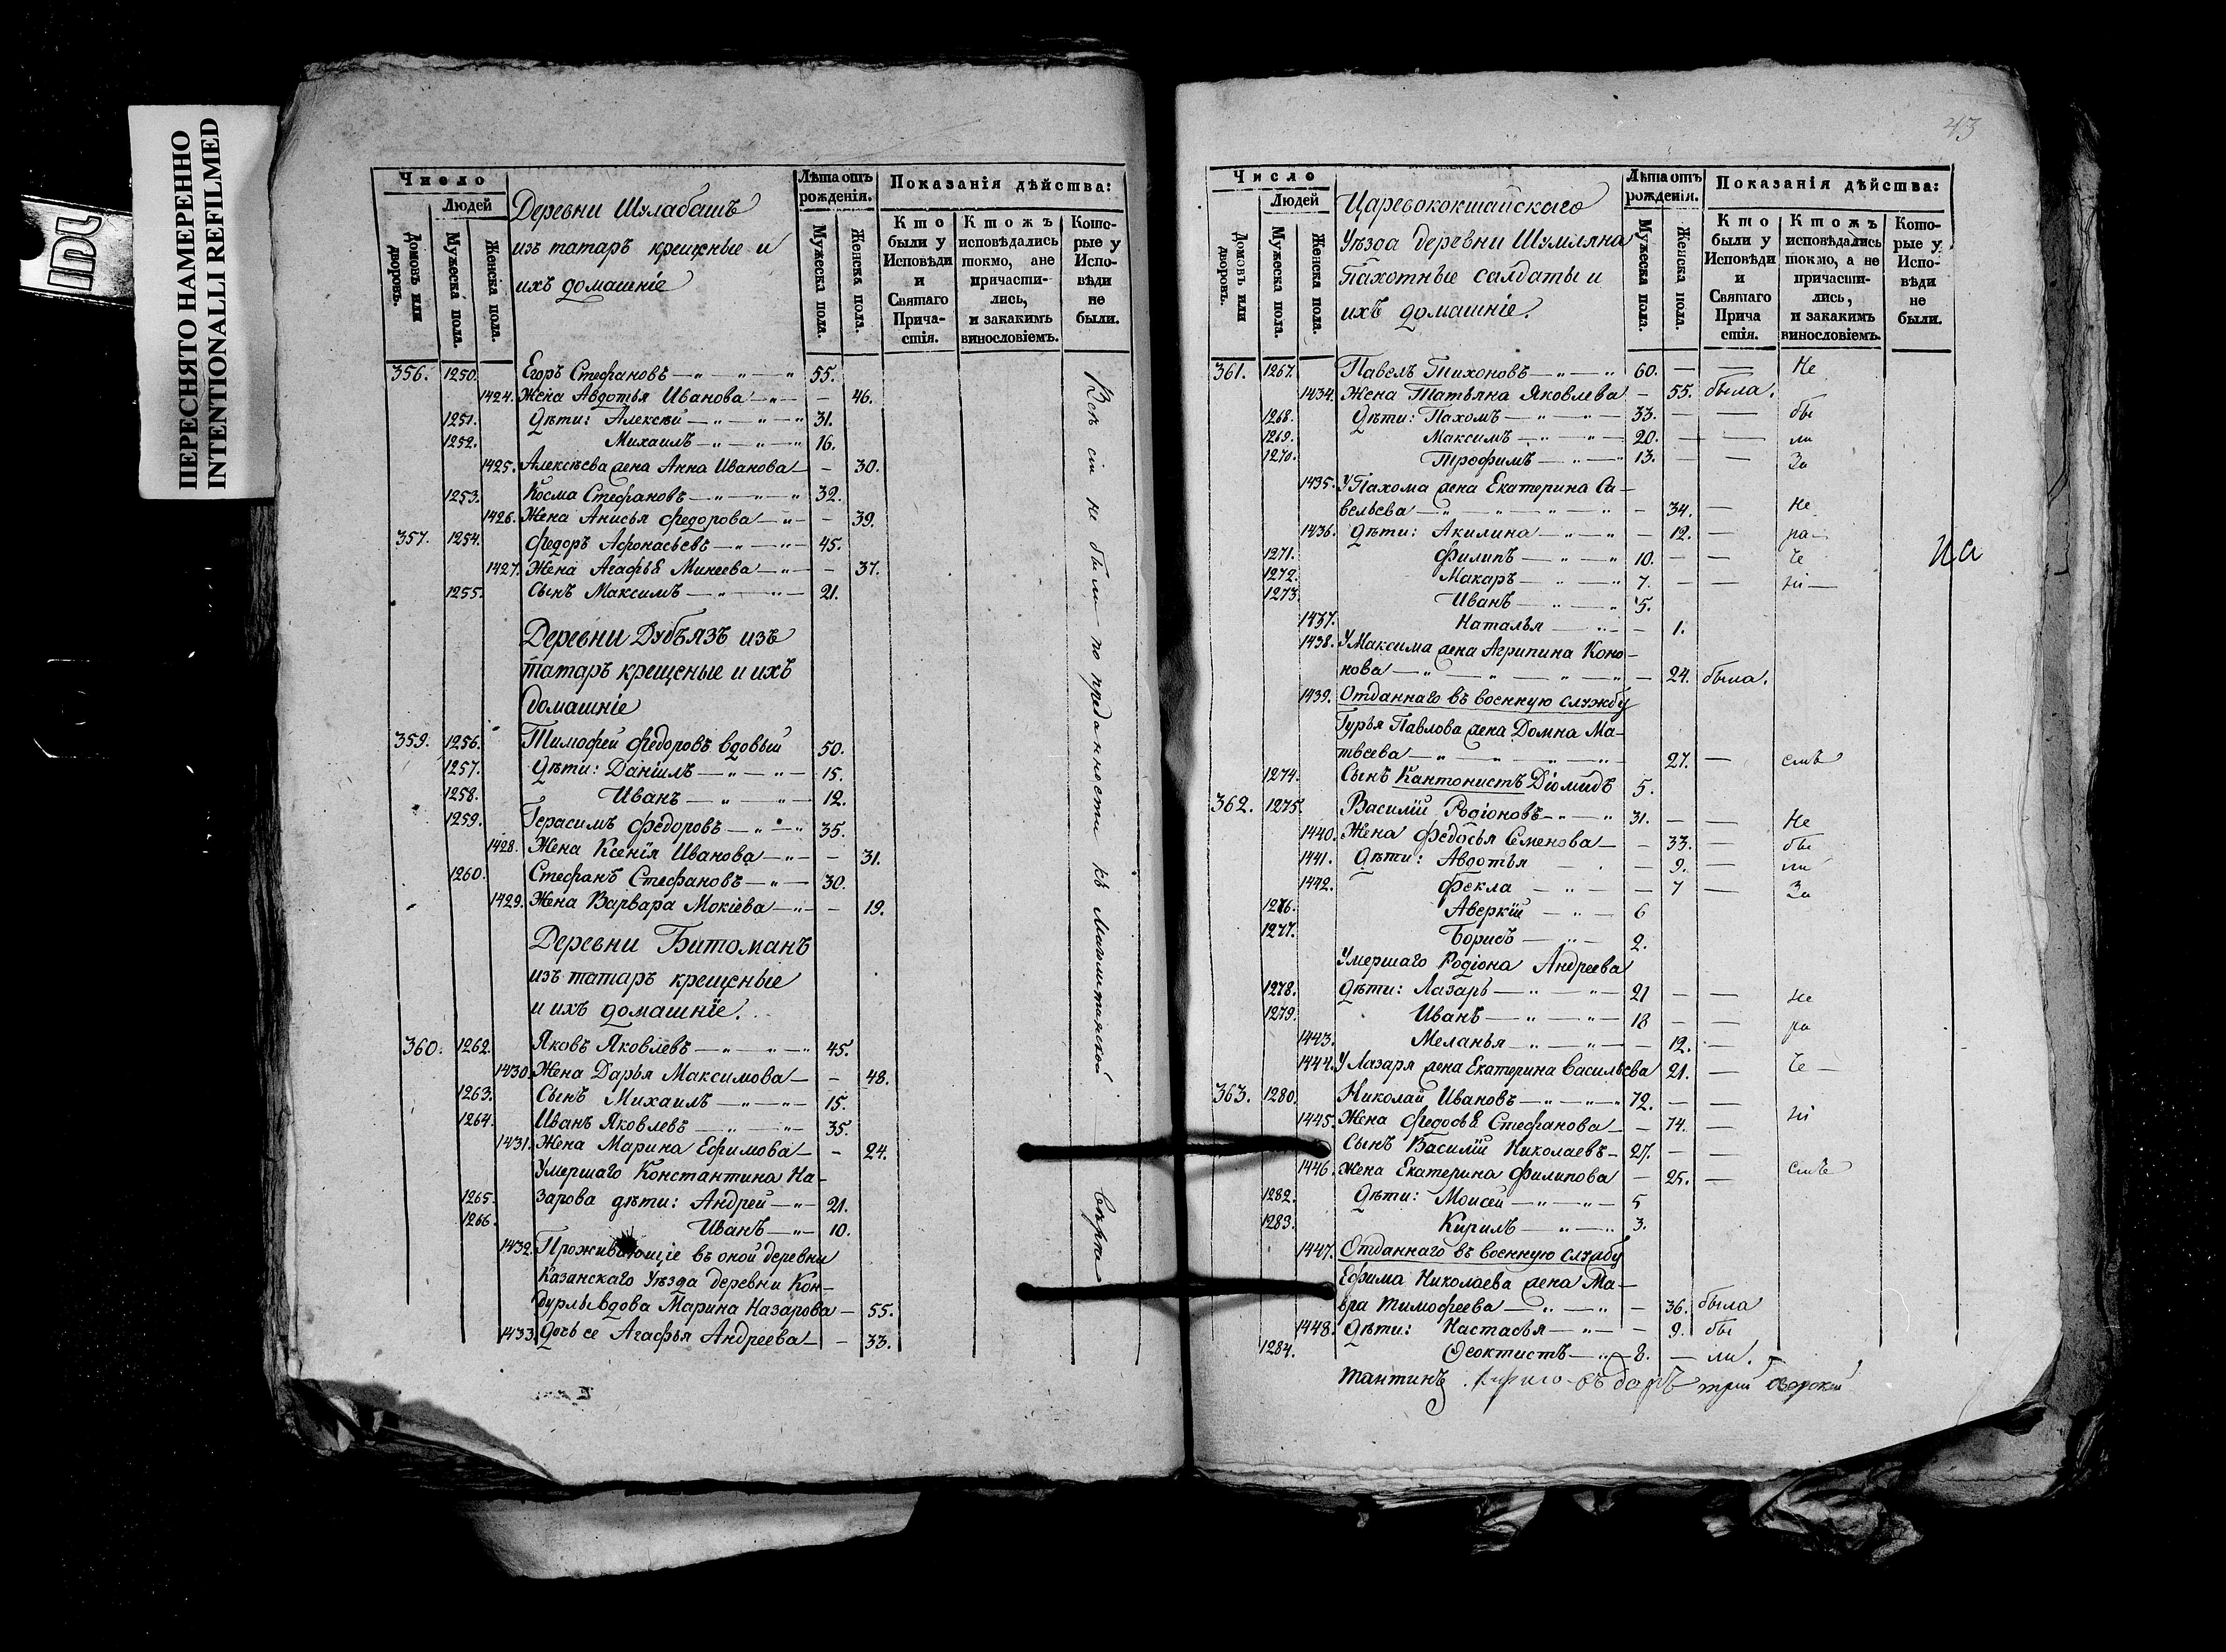 ПЕРЕСНЯТО НАМЕРЕННО
INTENTIONALLI REFILMED
Число
Людей
Домовъ или дворовъ.
Мужеска пола.
Женска пола.
Деревни Шулабашъ
изъ татаръ крещеные и
ихъ домашніе
Лѣта отъ рожденія.
Мужеска пола.
Женска пола.
Показанія дѣйства:
Кто были у Исповѣди и Святаго Прича- стія.
Ктожъ исповѣдались токмо, ане причасти- лись, и закакимъ винословіемъ.
Кото- рые у Испо- вѣди не были.
356. 1250. Егоръ Стефановъ — 55.
1424. Жена Авдотья Иванова — 46.
1251. Дѣти: Алексѣй — 31.
1252. Михаилъ — 16.
1425. Алексѣева жена Анна Иванова — 30.
1253. Косма Стефановъ — 32.
1426. Жена Анисья Федорова — 39.
357. 1254. Федоръ Афонасьевъ — 45.
1427. Жена Агафья Минеева — 37.
1255. Сынъ Максимъ — 21.
Деревни Дубъязъ изъ
татаръ крещеные и ихъ
домашніе
359. 1256. Тимофей Федоровъ вдовый 50.
1257. Дѣти: Даніилъ — 15.
1258. Иванъ — 12.
1259. Герасимъ Федоровъ — 35.
1428. Жена Ксенія Иванова — 31.
1260. Стефанъ Стефановъ — 30.
1429. Жена Варвара Мокіева — 19.
Деревни Битоманъ
изъ татаръ крещеные
и ихъ домашніе.
360. 1262. Яковъ Яковлевъ — 45.
1430. Жена Дарья Максимова — 48.
1263. Сынъ Михаилъ — 15.
1264. Иванъ Яковлевъ — 35.
1431. Жена Марина Ефимова — 24.
Умершаго Константина На-
1265. зарова дѣти: Андрей — 21.
1266. Иванъ — 10.
1432. Проживающіе въ оной деревни
Казанскаго Уѣзда деревни Кон-
дурлы вдова Марина Назарова — 55.
1433. Дочь ее Агафья Андреева — 33.
Всѣ сіи не были по преданности къ Магометанской вѣрѣ
43
Число
Людей
Домовъ или дворовъ.
Мужеска пола.
Женска пола.
Царевококшайскаго
Уѣзда деревни Шумляна
Пахотные салдаты и
ихъ домашніе.
Лѣта отъ рожденія.
Мужеска пола.
Женска пола.
Показанія дѣйства:
Кто были у Исповѣди и Святаго Прича стія.
Ктожъ исповѣдались токмо, а не причасти- лись, и закакимъ винословіемъ.
Кото- рые у Испо- вѣди не были.
361. 1267. Павелъ Тихоновъ — 60. — — Не
1434. Жена Татьяна Яковлева — 55. была.
1268. Дѣти: Пахомъ — 33. — — бы
1269. Максимъ — 20. — — ли
1270. Трофимъ — 13. — — За
1435. У Пахома жена Екатерина Са-
вельева — 34. — не
1436. Дѣти: Акилина — 12. — ра-
1271. Филипъ — 10. — — че
1272. Макаръ — 7. — — ні-
1273. Иванъ — 5.
1437. Наталья — 1.
1438. У Максима жена Агрипина Коно-
нова — 24. была.
1439. Отданнаго въ военную службу
Гурья Павлова жена Домна Ма-
твеева — 27. — емъ
1274. Сынъ Кантонистъ Діомидъ 5.
362. 1275. Василій Родіоновъ — 31. — — Не
1440. Жена Федосья Семенова — 33. — бы
1441. Дѣти: Авдотья — 9. — ли
1442. Фекла — 7 — За
1276. Аверкій — 6
1277. Борисъ — 2.
Умершаго Родіона Андреева
1278. Дѣти: Лазарь — 21 — — не
1279. Иванъ — 18 — — ра
1443. Меланья — 12. —
1444. У Лазаря жена Екатерина Васильева 21. — че-
363. 1280. Николай Ивановъ — 72. — —
1445. Жена Федосья Стефанова — 74. — ні
Сынъ Василій Николаевъ — 27. — —
1446. Жена Екатерина Филипова — 25. — емъ
1282. Дѣти: Моисей — 5
1283. Кирилъ — 3.
1447. Отданнаго въ военную службу
Ефима Николаева жена Ма-
вра Тимофеева — 36. была
1448. Дѣти: Настасья — 9. бы
1284. Ѳеоктистъ — 8. — ли.